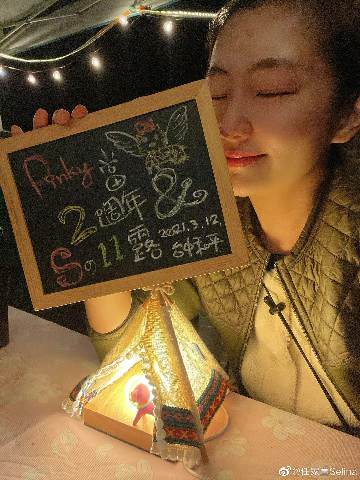 Pinky 當
2週年 &
Sの11露 2021.3.12
台中和平
@任家萱Selina